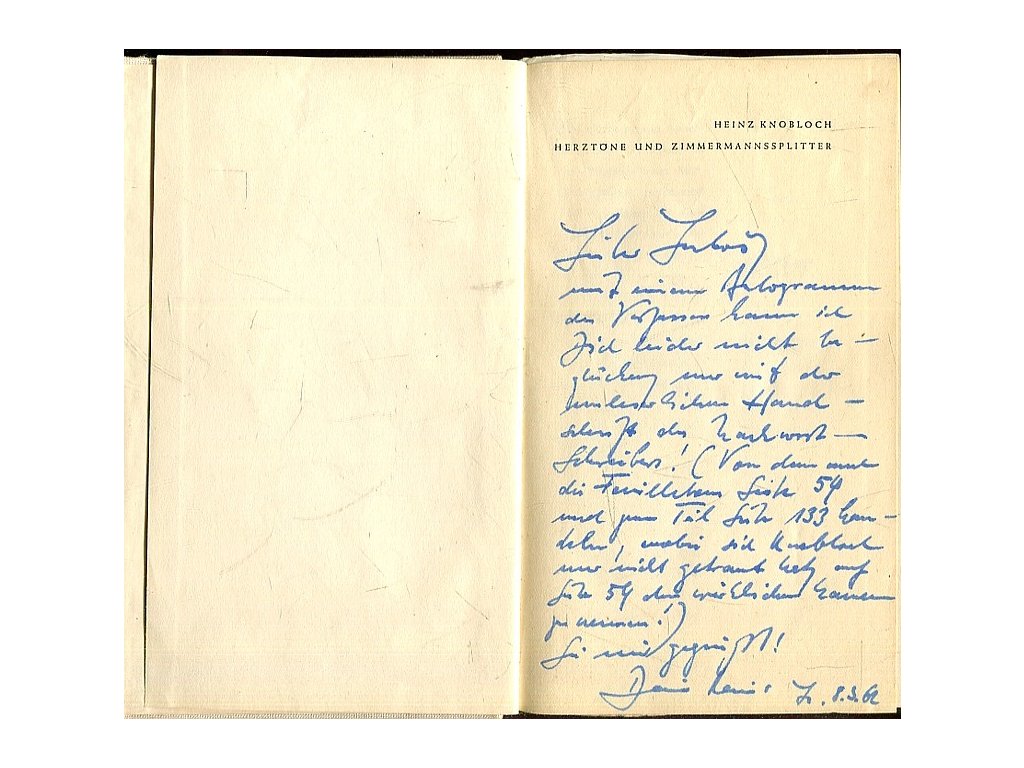 HEINZ KNOBLOCH
HERZTÖNE UND ZIMMERMANNSSPLITTER
Lieber
mit einem Autogramm
des Verfassers kann ich
Dich leider nicht be-
glücken, nur mit der
unleserlichen Hand-
schrift des Nachwort-
Schreibers! (Von dem auch
die Feuilletons Seite 54
und zum Teil Seite 133 han-
deln, wobei sich Knobloch
nur nicht getraut hat, auf
Seite 54 den wirklichen Namen
zu nennen!)
Sei mir gegrüßt!
Dein 8.3.62